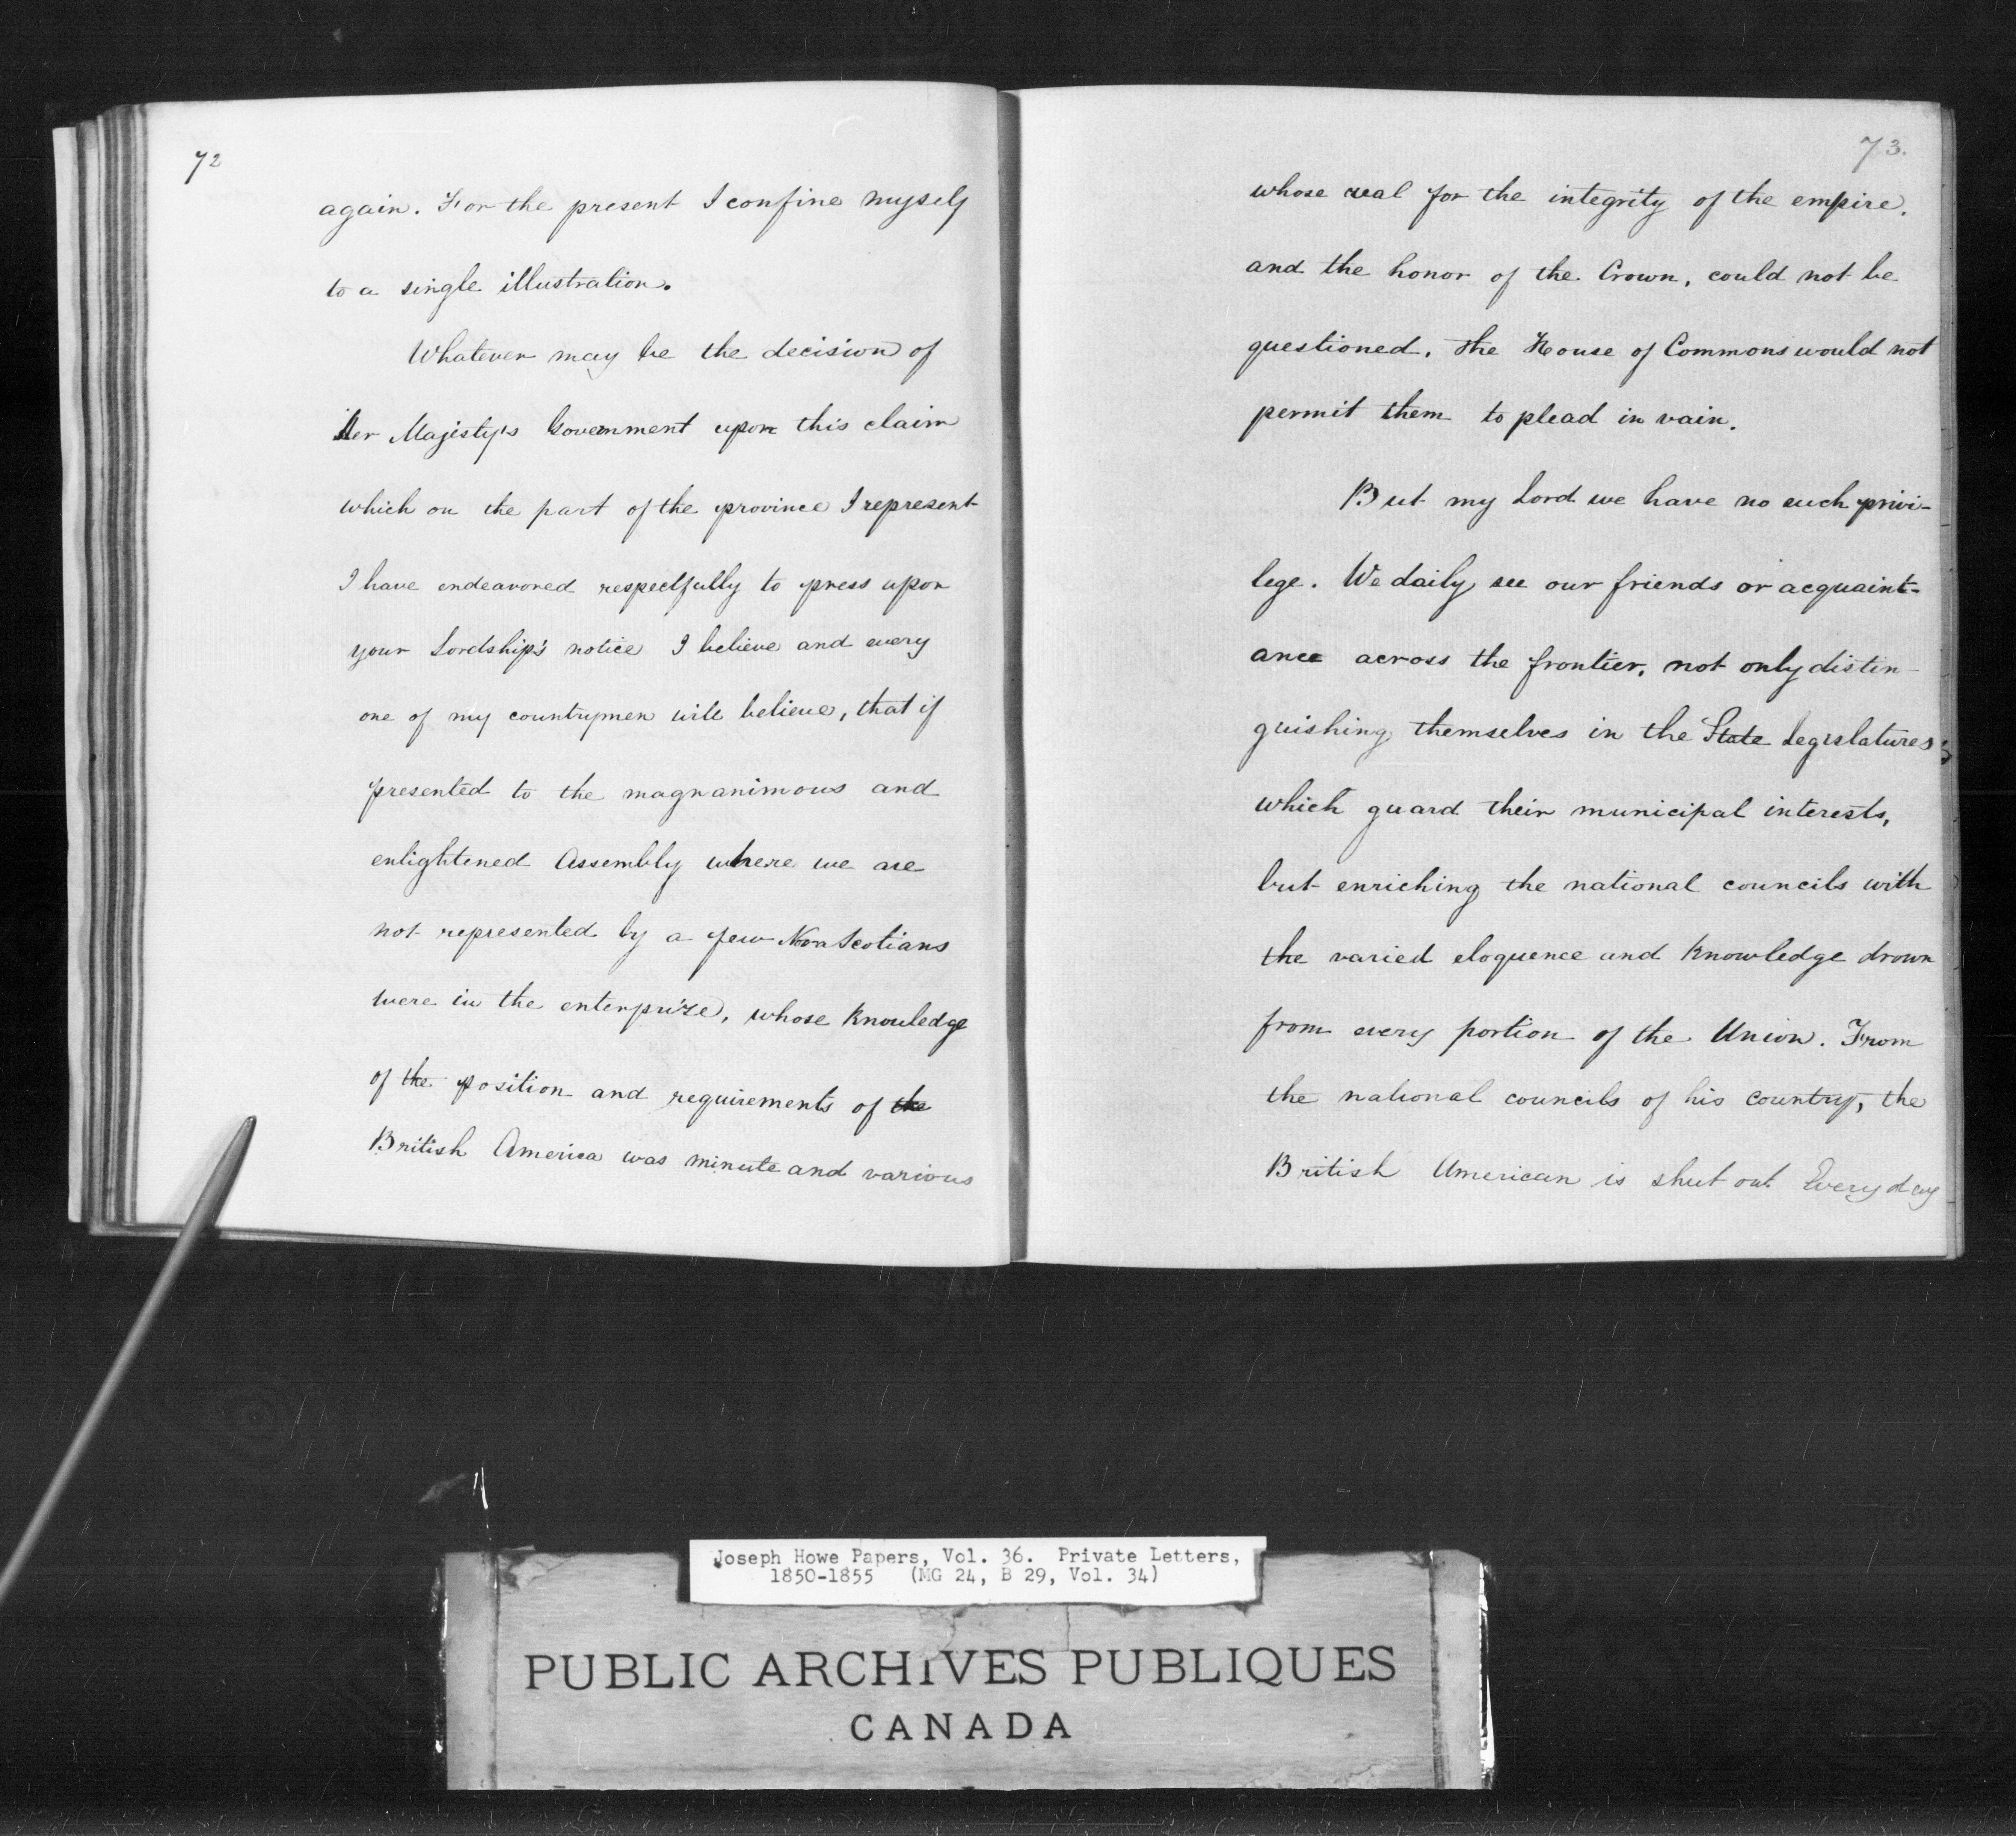 72
again. For the present I confine myself
to a single illustration.
Whatever may be the decision of
Her Majesty's Government upon this claim
which on the part of the province I represent
I have endeavored respectfully to press upon
your Lordship's notice I believe and every
one of my countrymen will believe, that if
presented to the magnanimous and
enlightened Assembly where we are
not represented by a few Nova Scotians
were in the enterprize, whose knowledge
of the position and requirements of the
British America was minute and various
73.
whose zeal for the integrity of the empire.
and the honor of the Crown, could not be
questioned. The House of Commons would not
permit them to plead in vain.
But my Lord we have no such privi-
lege. We daily see our friends or acquaint-
ance across the frontier, not only distin-
guishing themselves in the State Legislatures;
which guard their municipal interests,
but enriching the national councils with
the varied eloquence and knowledge drown
from every portion of the Union. From
the national councils of his country, the
British American is shut out. Every day
Joseph Howe Papers, Vol. 36. Private Letters,
1850-1855 (MG 24, B 29, Vol. 34)
PUBLIC ARCHIVES PUBLIQUES
CANADA